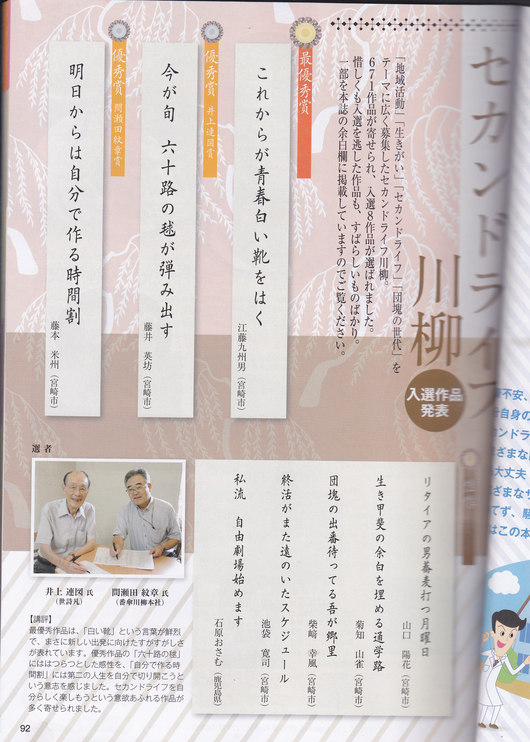 セカンドライフ
川柳
入選作品
発表
「地域活動」「生きがい」「セカンドライフ」「団塊の世代」を
テーマに広く募集したセカンドライフ川柳。
671作品が寄せられ、入選8作品が選ばれました。
惜しくも入選を逃した作品も、すばらしいものばかり。
一部を本誌の余白欄に掲載していますのでご覧ください。
最優秀賞
これからが青春白い靴をはく
江藤九州男（宮崎市）
優秀賞 井上連図賞
今が旬 六十路の毬が弾み出す
藤井 英坊（宮崎市）
優秀賞 間瀬田紋章賞
明日からは自分で作る時間割
藤本 米州（宮崎市）
リタイアの男蕎麦打つ月曜日
山口 陽花（宮崎市）
生き甲斐の余白を埋める通学路
菊知 山雀（宮崎市）
団塊の出番待ってる吾が郷里
柴﨑 幸風（宮崎市）
終活がまた遠のいたスケジュール
池袋 寛司（宮崎市）
私流 自由劇場始めます
石原おさむ（鹿児島県）
選者
井上 連図 氏
（世詩凡）
間瀬田 紋章 氏
（番傘川柳本社）
【講評】
最優秀作品は、「白い靴」という言葉が鮮烈
で、まさに新しい出発に向けたすがすがしさ
が表れています。優秀作品の「六十路の毬」
にははつらつとした感性を、「自分で作る時
間割」には第二の人生を自分で切り開こうと
いう意志を感じました。セカンドライフを自
分らしく楽しもうという意欲あふれる作品が
多く寄せられました。
92